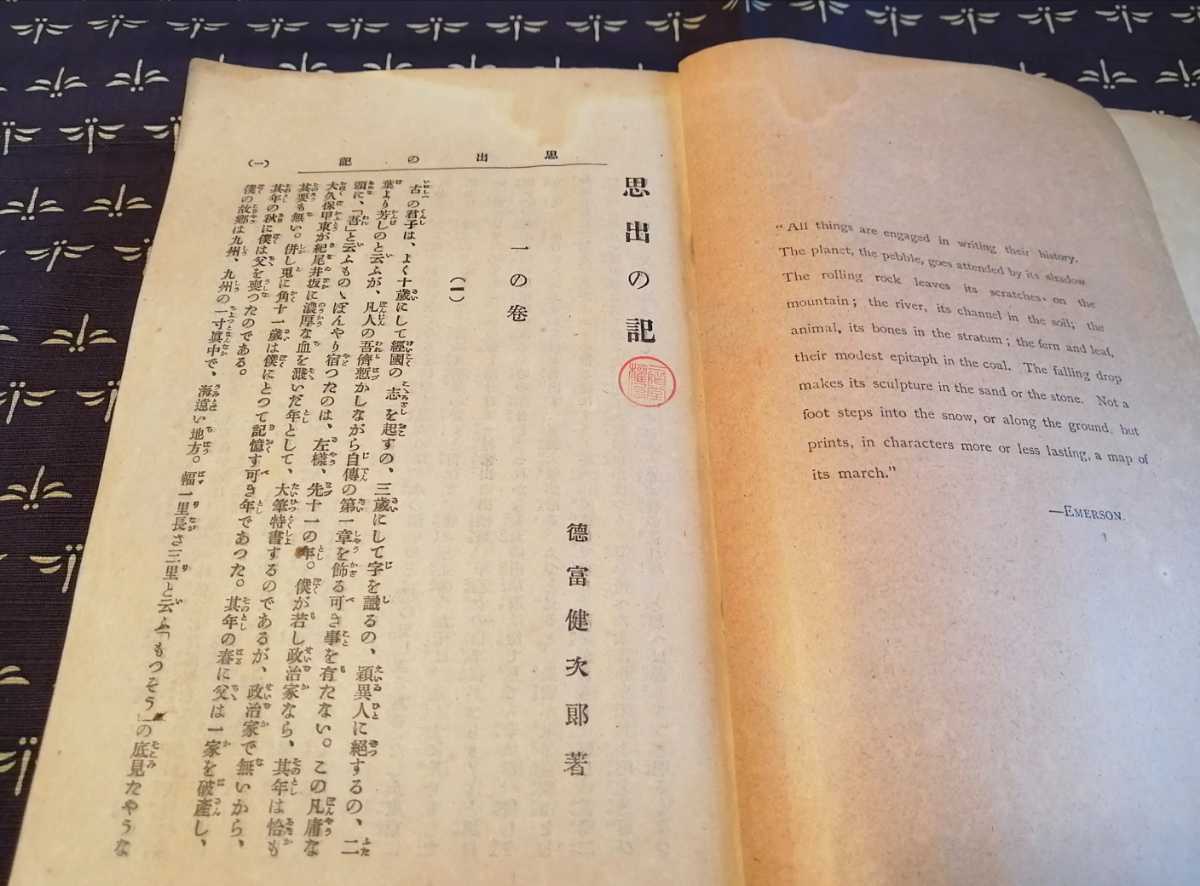 "All things are engaged in writing their history.
The planet, the pebble, goes attended by its shadow
The rolling rock leaves its scratches on the
mountain; the river, its channel in the soil; the
animal, its bones in the stratum; the fern and leaf,
their modest epitaph in the coal. The falling drop
makes its sculpture in the sand or the stone. Not a
foot steps into the snow, or along the ground, but
prints, in characters more or less lasting, a map of
its march."
—EMERSON.
思出の記
(一)
思出の記
德富健次郎著
一の卷
(一)
古の君子は、よく十歳にして經國の志を起すの、三歳にして字を識るの、穎異人に絕するの、二
葉より芳しのと云ふが、凡人の吾儕慙かしながら自傳の第一章を飾る可き事を有たない。この凡庸な
頭に、「吾」と云ふものゝぼんやり宿つたのは、左樣、先十一の年。僕が若し政治家なら、其年は恰も
大久保甲東が紀尾井坂に濃厚な血を濺いだ年として、大筆特書するのであるが、政治家で無いから、
其要も無い。併し兎に角十一歳は僕にとつて記憶す可き年であつた。其年の春に父は一家を破產し、
其年の秋に僕は父を喪つたのである。
僕の故鄕は九州、九州の一寸眞中で、海遠い地方。幅一里長さ三里と云ふ「もつそう」の底見たやうな